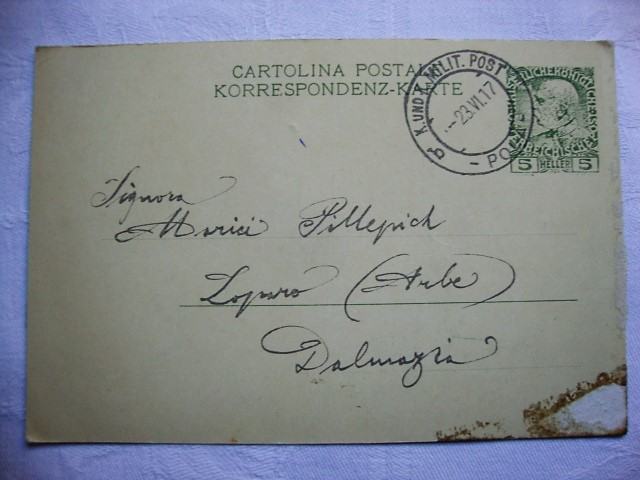 CARTOLINA POSTALE
KORRESPONDENZ-KARTE
K. UND K. MILIT. POST
23.VI.17
- POLA -
5 HELLER 5
Signora
Marici Pillepich
Loparo (Arbe)
Dalmazia